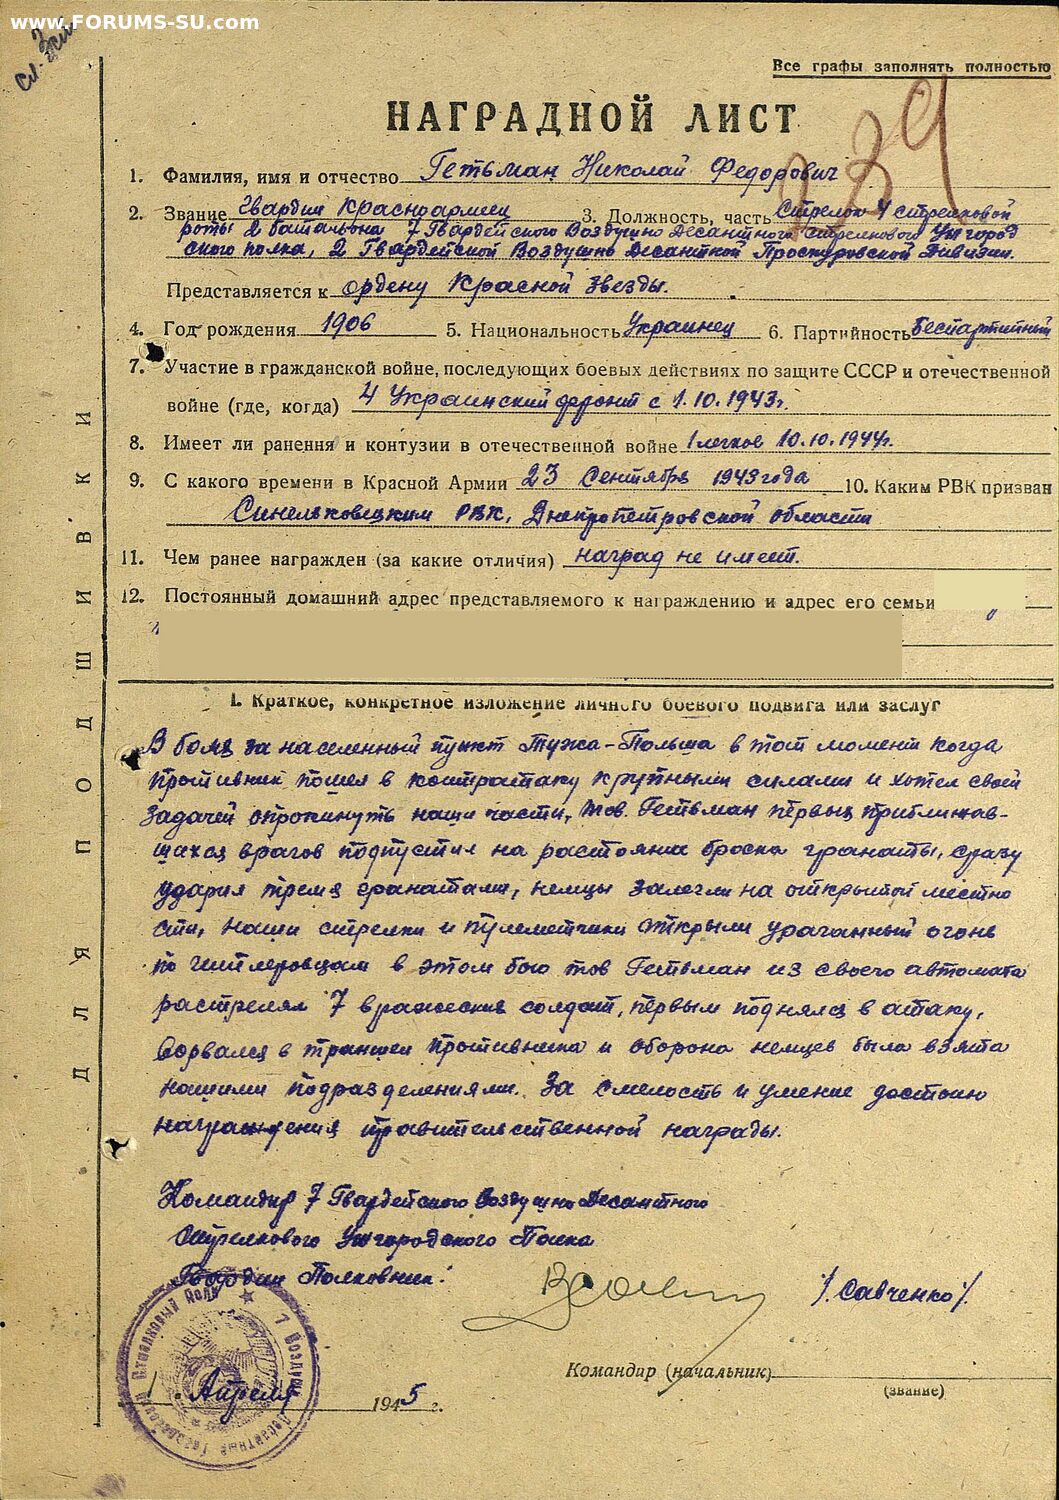 www.FORUMS-SU.com
Все графы заполнять полностью
239
НАГРАДНОЙ ЛИСТ
1. Фамилия, имя и отчество Гетьман Николай Федорович
2. Звание Гвардии Красноармеец 3. Должность, часть Стрелок 4 стрелковой
роты 2 батальона 7 Гвардейского Воздушно Десантного стрелкового Ужгород
ского полка, 2 Гвардейской Воздушно Десантной Проскуровской Дивизии.
Представляется к ордену Красной Звезды.
4. Год рождения 1906 5. Национальность Украинец 6. Партийность Беспартийный
7. Участие в гражданской войне, последующих боевых действиях по защите СССР и отечественной
войне (где, когда) 4 Украинский фронт с 1.10.1943г.
8. Имеет ли ранения и контузии в отечественной войне 1 легкое 10.10.1944г.
9. С какого времени в Красной Армии 23 Сентября 1943 года 10. Каким РВК призван
Синельковецким РВК, Днепропетровской области
11. Чем ранее награжден (за какие отличия) наград не имеет.
12. Постоянный домашний адрес представляемого к награждению и адрес его семьи
ДЛЯ ПОДШИВКИ
I. Краткое, конкретное изложение личного боевого подвига или заслуг
В боях за населенный пункт Тужа-Польша в тот момент когда
противник пошел в контратаку крупными силами и хотел своей
задачей опрокинуть наши части, тов. Гетьман первых приближав-
шихся врагов подпустил на растояние броска гранаты, сразу
ударил тремя гранатами, немцы залегли на открытой местно
сти, наши стрелки и пулеметчики открыли ураганный огонь
по гитлеровцам в этом бою тов Гетьман из своего автомата
растрелял 7 вражеских солдат, первым поднялся в атаку,
ворвался в траншеи противника и оборона немцев была взята
нашими подразделениями. За смелость и умение достоин
награждения правительственной награды.
Командир 7 Гвардейского Воздушно Десантного
Стрелкового Ужгородского Полка
Гвардии Полковник: /Савченко/.
Командир (начальник)
(звание)
Апреля 1945 г.